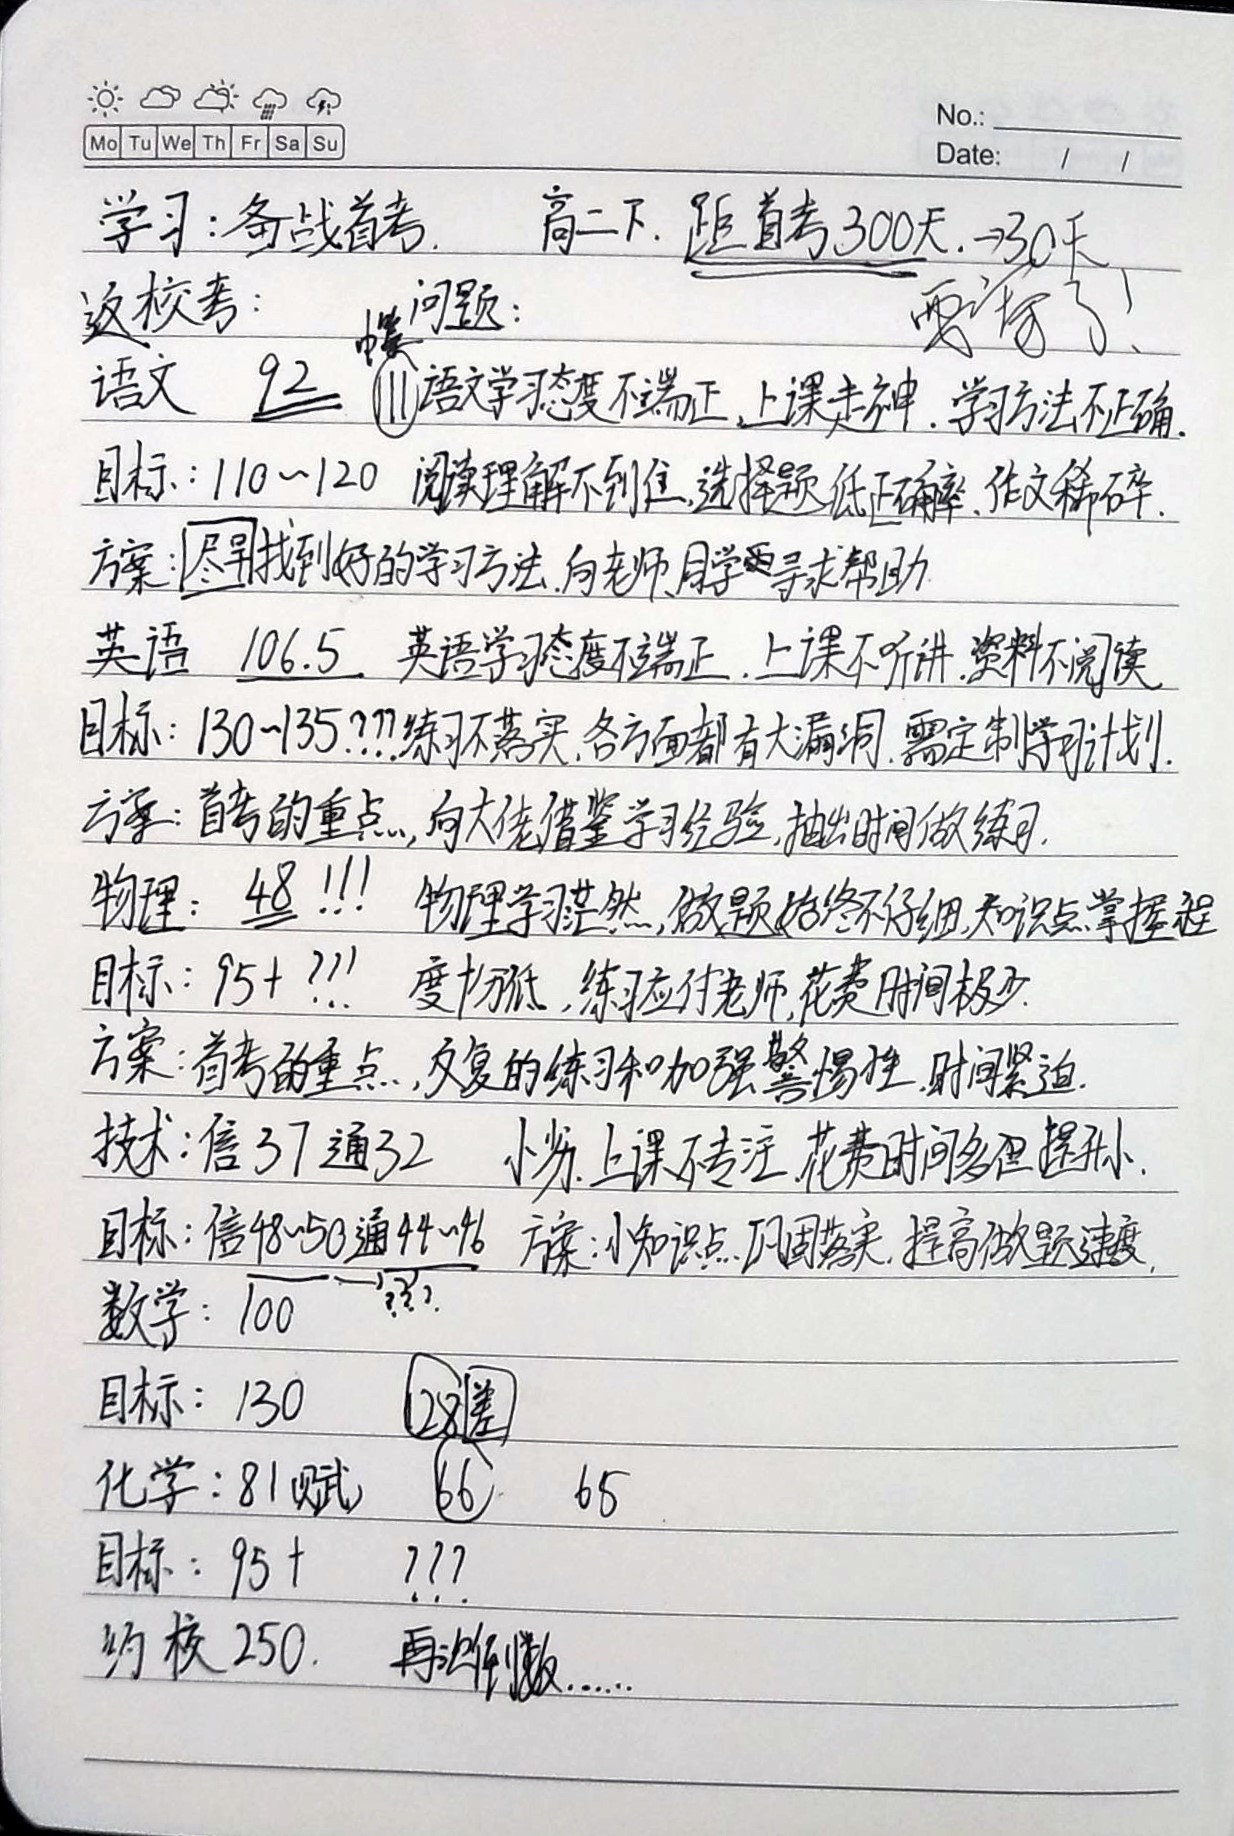 No.:
Mo Tu We Th Fr Sa Su
Date: / /
学习：备战首考. 高二下. 距首考300天.→30天
返校考： 问题： 要 了！
语文 92 111 语文学习态度不端正、上课走神.学习方法不正确.
目标：110~120 阅读理解不到位、选择题低正确率、作文稀碎.
方案：尽早找到好的学习方法、向老师、同学寻求帮助
英语 106.5 英语学习态度不端正、上课不听讲.资料不阅读
目标：130~135???练习不落实、各方面都有大漏洞.需定制学习计划.
方案：首考的重点..., 向大佬借鉴学习经验,抽出时间做练习.
物理：48!!! 物理学习茫然,做题始终不仔细、知识点掌握程
目标：95+??? 度均低,练习应付老师,花费时间极少.
方案：首考的重点...,反复的练习和加强警惕性.时间紧迫.
技术：信37 通32 小劣.上课不专注.花费时间多但提升小.
目标：信48~50通44~46 方案：小知识点.巩固落实.提高做题速度.
→???.
数学：100
目标：130 128差
化学：81赋 66 65
目标：95+ ???
约校250. 再次倒数......